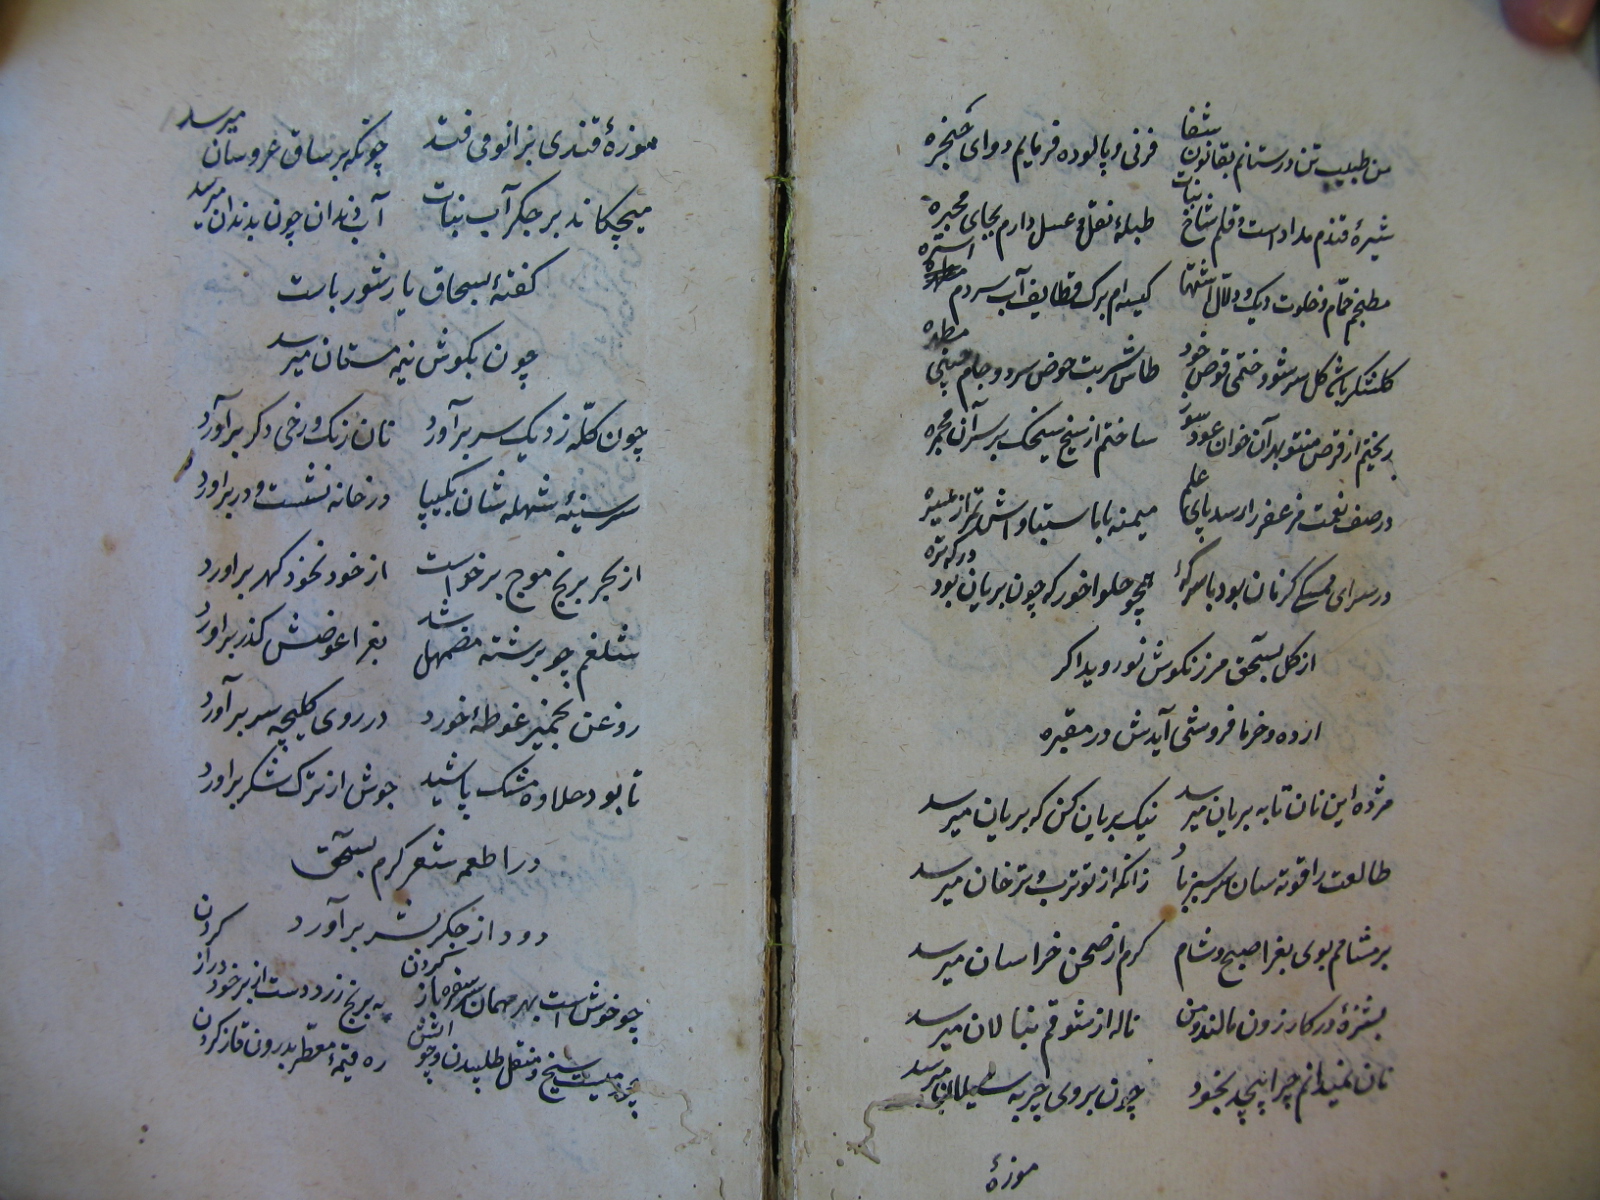 من طبیب تن درستانم بقانون شفا فرنی و پالوده فرمایم دوای حنجره
شیره قندم مداد است و قلم شاخ نبات طبلهٔ نقل و عسل دارم بجای محبره
مطبخم حمّام و خلوت دیک و دلاک اشتها کیسه ام برک قطایف آب سردم استره
کلشکر باشد کل سرشو و ختمی قرص خود طاس شربت حوض سرد و جام چینی مطهره
ریختم از قرص منتو بهر آن خوان عود سوز ساختم از سیخ سیخک بر سر آن مجمره
در صف نعمت مزعفر را رسد پای علم میمنه با با سبتا و آش تتماز میسره
در سرای ممسکی کر نان بود با سرکهٔ همچو حلوا خور که چون بریان بود در که تره
از کل بسحق مرزنکوش نو روید اکر
ارده و خرما فروشی آیدش در مقبره
مژده این نان تا به بریان میرسد نیک بریان کن که بریان میرسد
طالعت را قوته سان سر سبز باد زانکه از تو ترب و ترخان میرسد
بر مشامم بوی بغرا صبح و شام کرم از صحن خراسان میرسد
بشنزهٔ در کارزون مالند و من ناله از شوقم بنالان میرسد
نان نمیدانم چرا پیچد بخود چون بروی چربه سیلان میرسد
موزهٔ
موزهٔ قندی بزانو می فتد چونکه بر ساق عروسان میرسد
میچکاند بر جکر آب نبات آب دندان چون بدندان میرسد
کفتهٔ بسحاق یا رشور باست
چون بکوش نیم مستان میرسد
چون کلّه ز دیک سر برآورد نان زنک و رخی دکر برآورد
سر سینهٔ شهله شان بکیپا در خانه نشست و در براورد
از بحر برنج موج برخواست از خود نخود کهر براورد
شلغم چو برشته مضمحل شد بغرا عوضش کذر براورد
روغن بخمیر غوطهٔ خورد در روی کلیچه سر برآورد
تا بود حلاوه مشک پاشید جوش از ترک شکر براورد
در اطعمه شعر کرم بسحق
دود از جکر بشر برآورد
چو خوش است بهر مهمان سر سفره باز کردن به برنج زرد دست از بر خود دراز کردن
سیخ و منقل طلبیدن و چو آتش ره قیمهٔ معطر بدرون قاز کردن